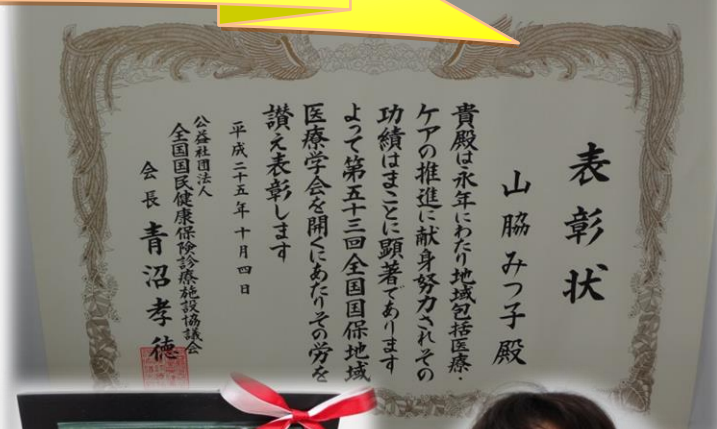 表彰状
山脇みつ子殿
貴殿は永年にわたり地域包括医療・
ケアの推進に献身努力されその
功績はまことに顕著であります
よって第五十三回全国国保地域
医療学会を開くにあたりその労を
讃え表彰します
平成二十五年十月四日
公益社団法人
全国国民健康保険診療施設協議会
会長 青沼孝徳